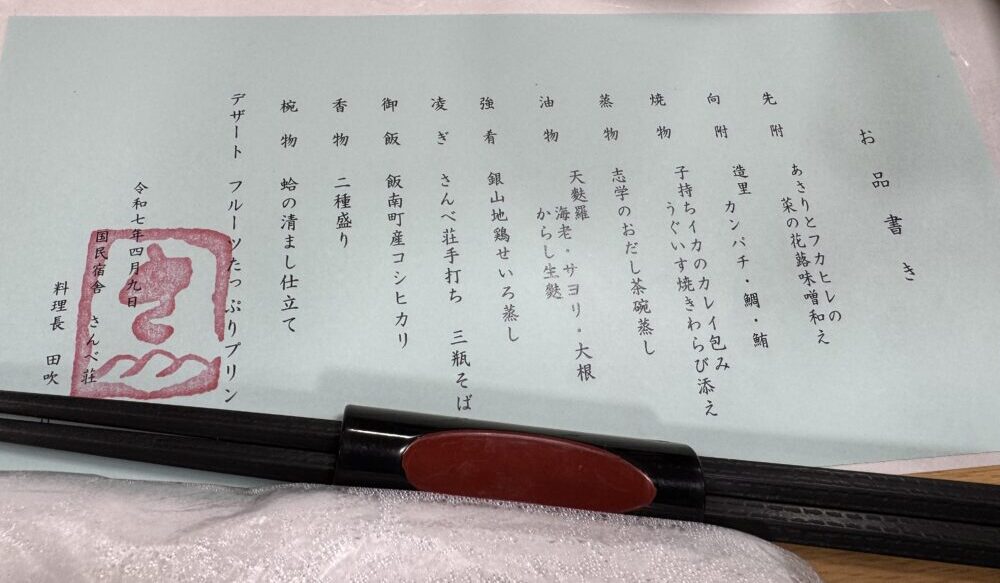 お品書き
先附
あさりとフカヒレの
菜の花蕗味噌和え
向附
造里 カンパチ・鯛・鮪
焼物
子持ちイカのカレイ包み
うぐいす焼きわらび添え
蒸物
志学のおだし茶碗蒸し
油物
天麩羅 海老・サヨリ・大根
からし生麩
強肴
銀山地鶏せいろ蒸し
凌ぎ
さんべ荘手打ち 三瓶そば
御飯
飯南町産コシヒカリ
香物
二種盛り
椀物
蛤の清まし仕立て
デザート フルーツたっぷりプリン
令和七年四月九日
国民宿舎 さんべ荘
料理長 田吹